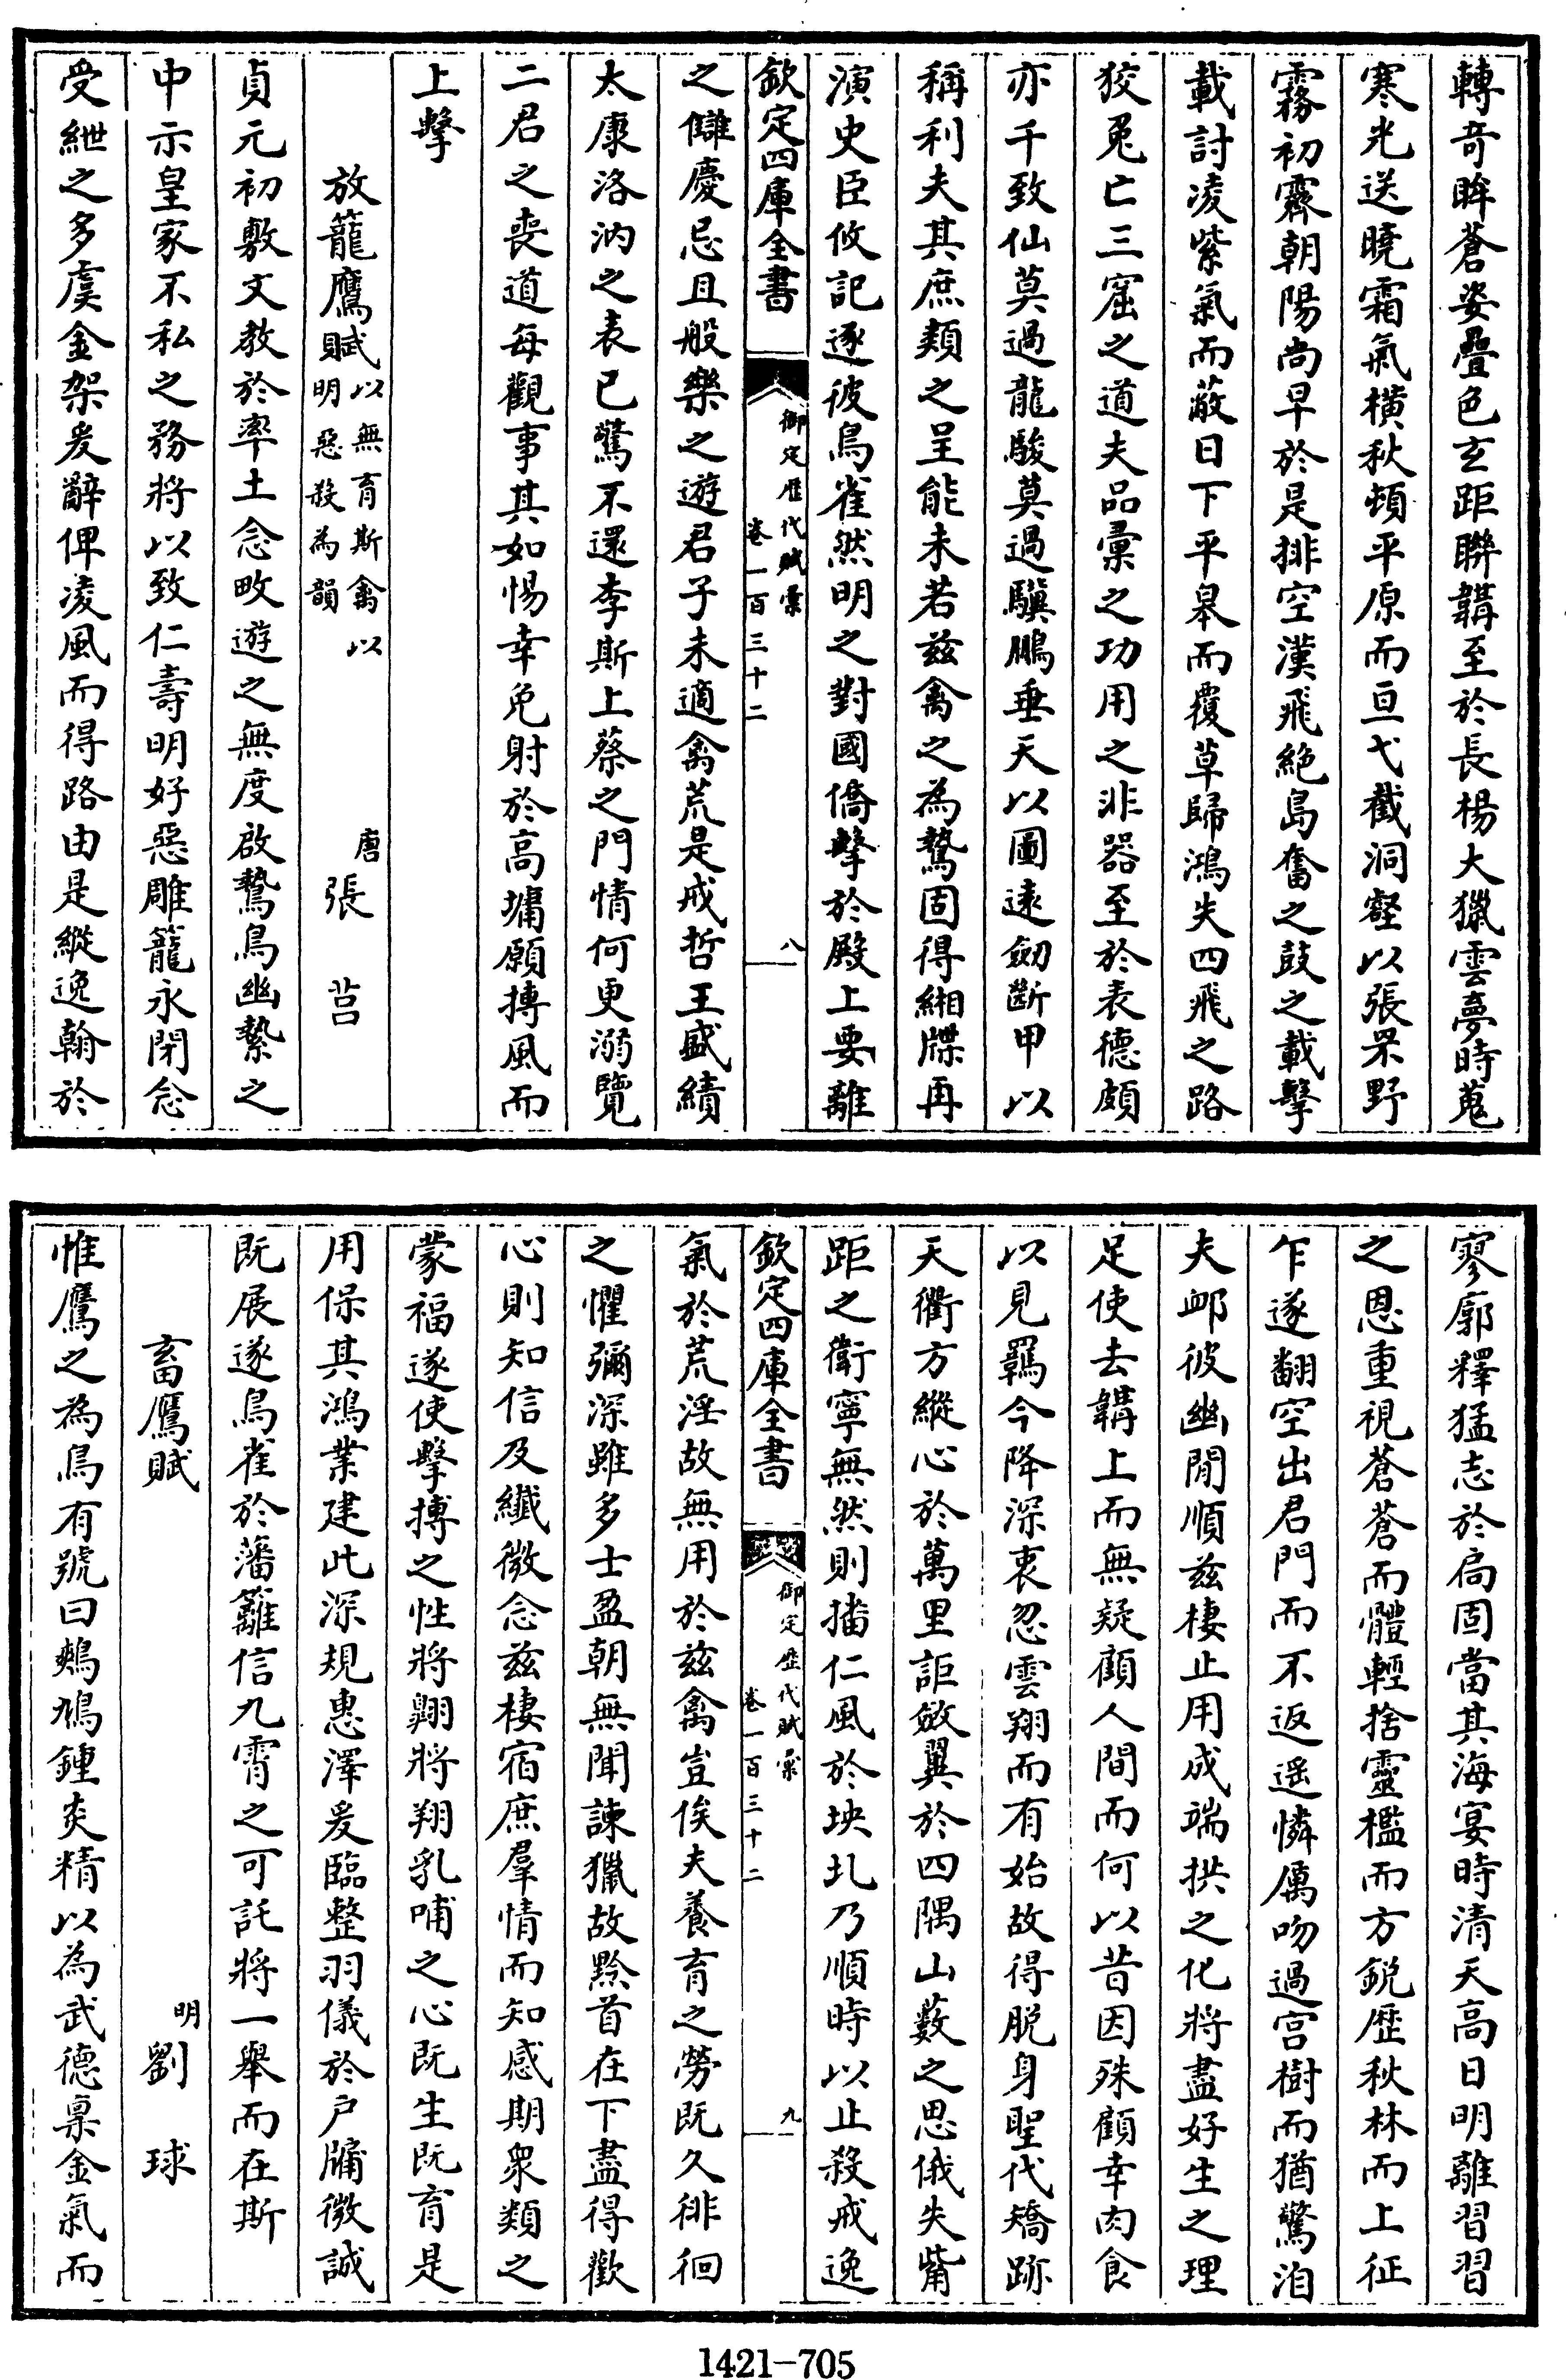 轉奇眸蒼姿疊色玄距聯韝至於長楊大獵雲夢時蒐
寒光送曉霜氣橫秋頓平原而亘弋截洞壑以張罘野
霧初霽朝陽尚早於是排空漢飛絶島奮之鼓之載擊
載討凌紫氣而蔽日下平皋而覆草歸鴻失四飛之路
狡兔亡三窟之道夫品彚之功用之非器至於表德頗
亦千致仙莫過龍駿莫過驥鵬垂天以圖遠劒斷甲以
稱利夫其庶類之呈能未若兹禽之為鷙固得緗牒再
演史臣攸記逐彼鳥雀然明之對國僑擊於殿上要離
欽定四庫全書
御定歴代賦彙
卷一百三十二
八
之讎慶忌且般樂之遊君子未適禽荒是戒哲王盛績
太康洛汭之表已驚不還李斯上蔡之門情何更溺覽
二君之喪道每觀事其如惕幸免射於高墉願摶風而
上擊
放籠鷹賦以無育斯禽以明惡殺為韻
唐張莒
貞元初敷文教於率土念畋遊之無度啟鷙鳥幽縶之
中示皇家不私之務將以致仁壽明好惡雕籠永閉念
受紲之多虞金架爰辭俾凌風而得路由是縱逸翰於
寥廓釋猛志於扃固當其海宴時清天高日明離習習
之恩重視蒼蒼而體輕捨靈檻而方鋭歴秋林而上征
乍遂翻空出君門而不返遥憐厲吻過宮樹而猶驚洎
夫䘏彼幽閒順兹棲止用成端拱之化將盡好生之理
足使去韝上而無疑顧人間而何以昔因殊顧幸肉食
以見羈今降深衷忽雲翔而有始故得脱身聖代矯跡
天衢方縱心於萬里詎斂翼於四隅山藪之思俄失觜
距之衛寧無然則播仁風於坱圠乃順時以止殺戒逸
欽定四庫全書
御定歴代賦彙
卷一百三十二
九
氣於荒淫故無用於兹禽豈俟夫養育之勞既久徘徊
之懼彌深雖多士盈朝無聞諫獵故黔首在下盡得歡
心則知信及纖微念兹棲宿庶羣情而知感期衆類之
蒙福遂使擊搏之性將翺將翔乳哺之心既生既育是
用保其鴻業建此深規惠澤爰臨整羽儀於户牖微誠
既展遂鳥雀於藩籬信九霄之可託將一舉而在斯
畜鷹賦
明劉球
惟鷹之為鳥有號曰鷞鳩鍾炎精以為武德稟金氣而
1421-705